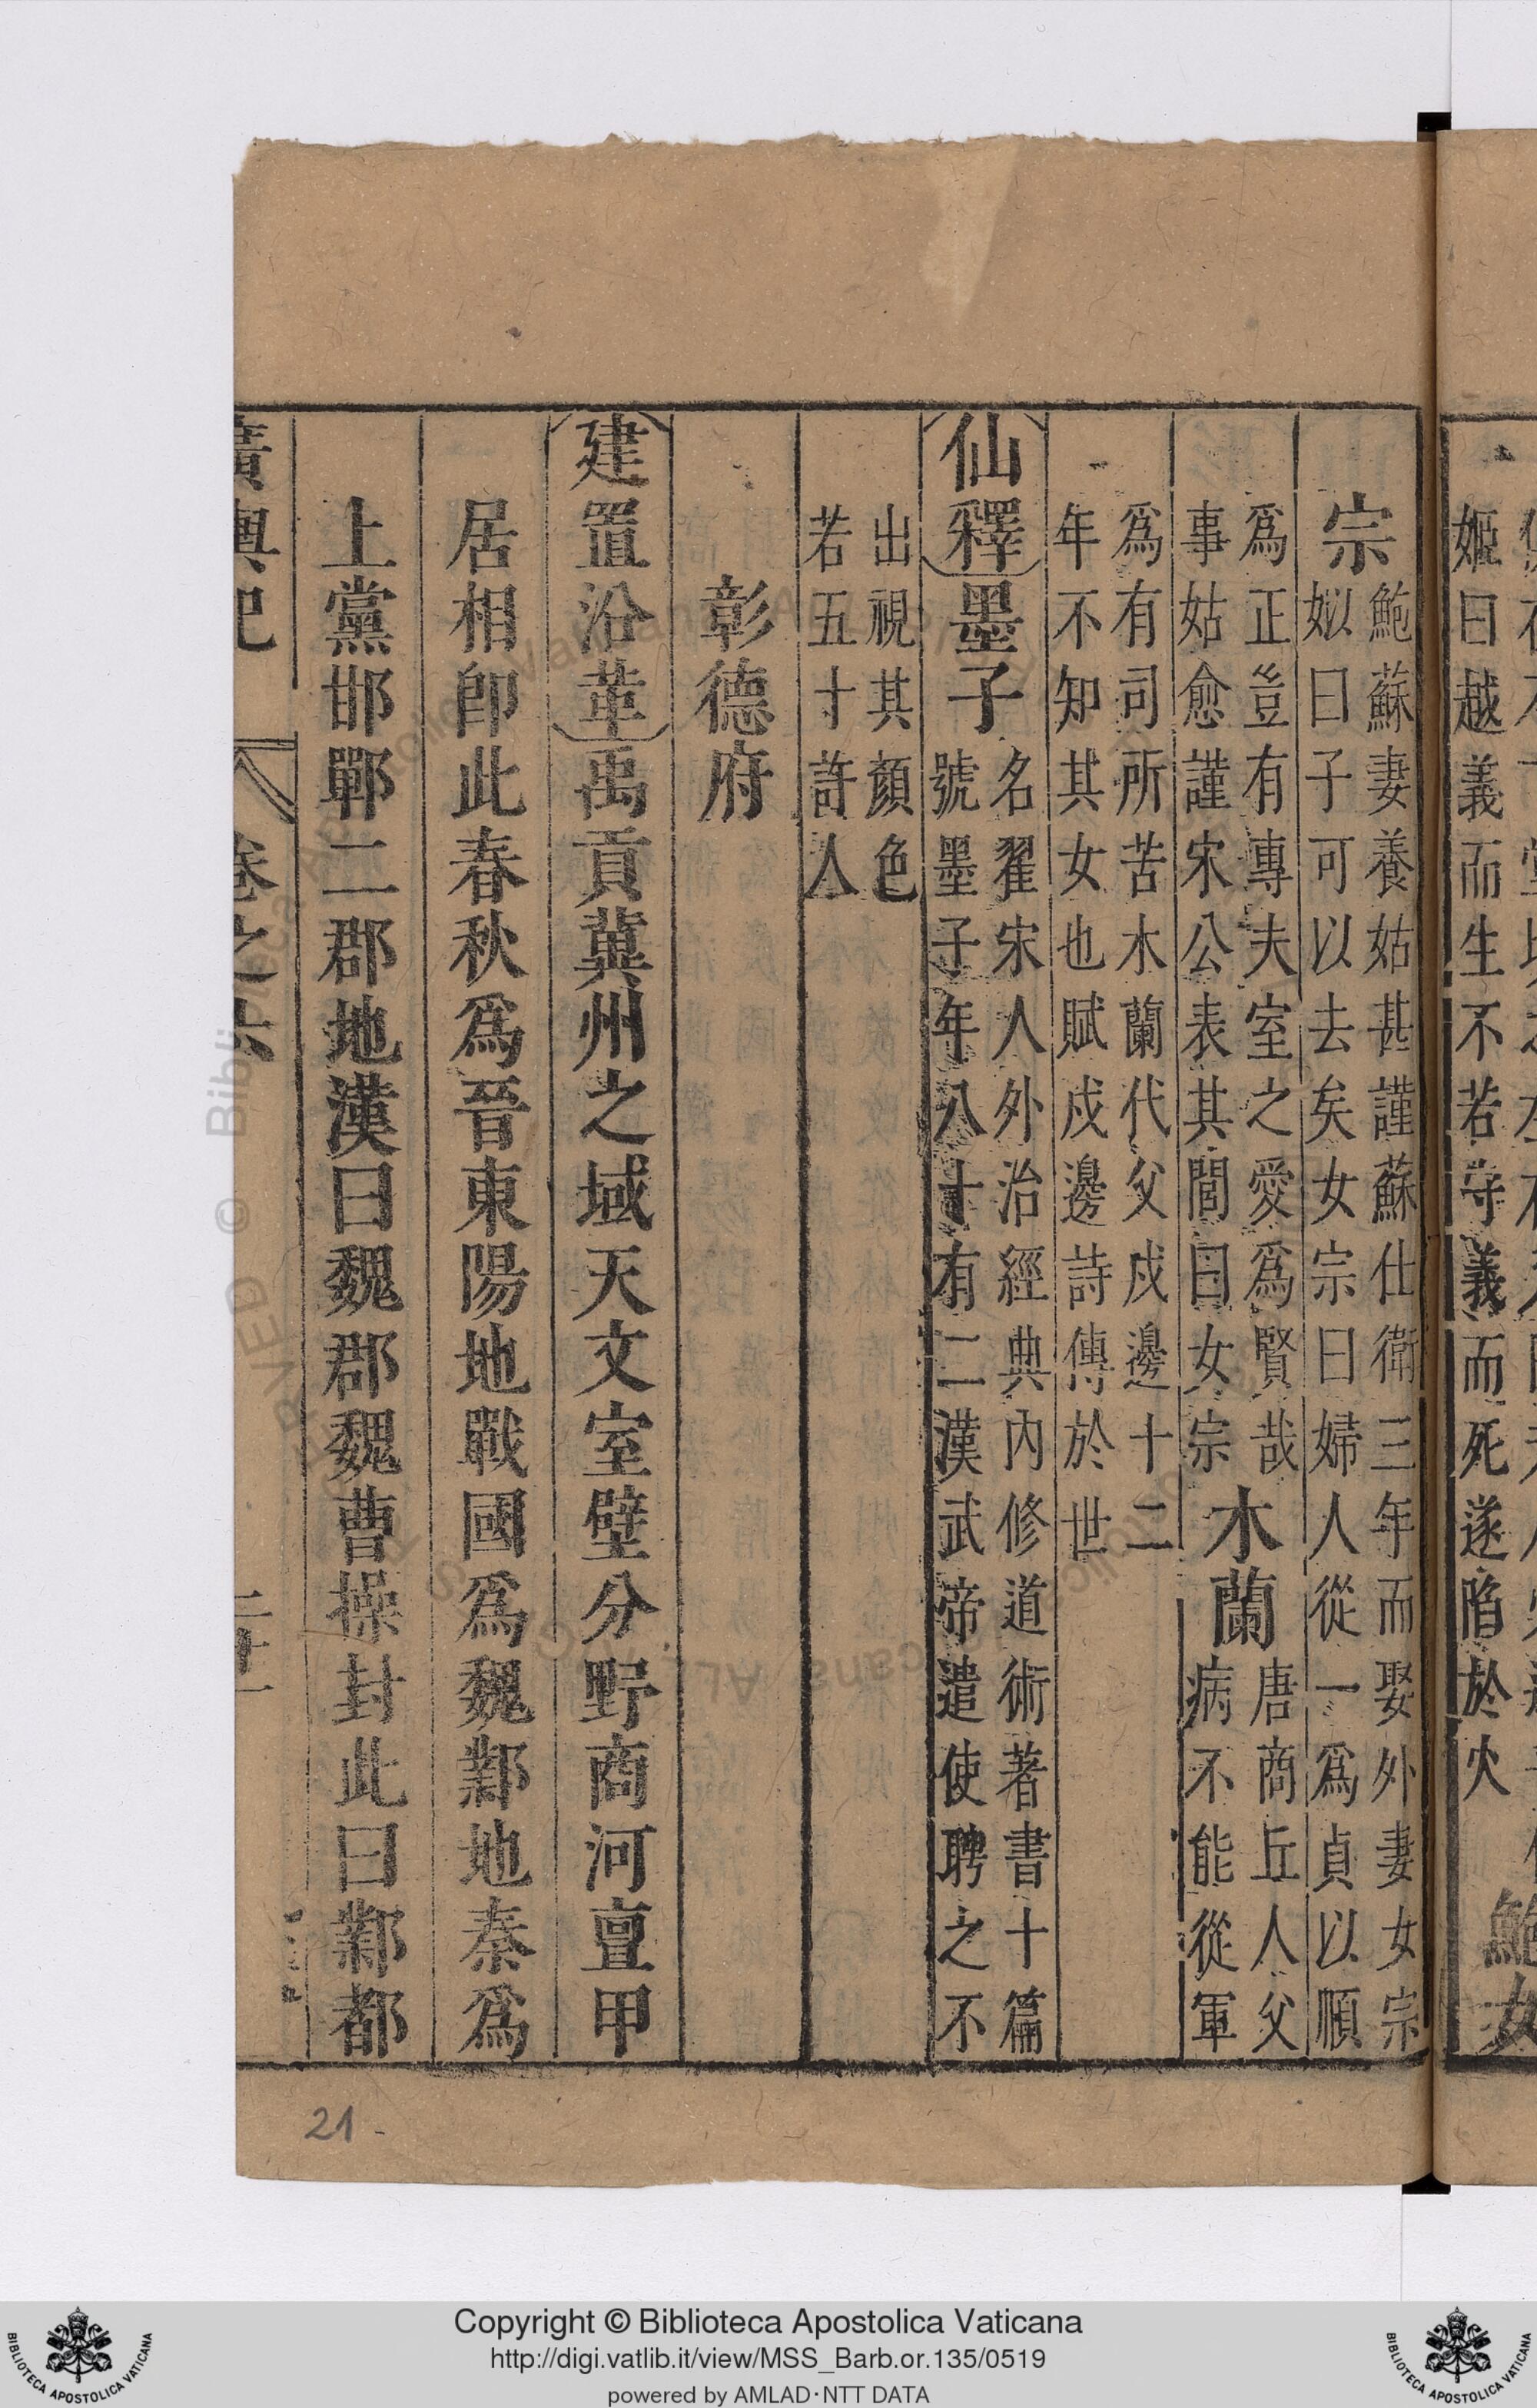 姬曰越義而生不若守義而死遂陷於火
鮑女
宗
鮑蘇妻養姑甚謹蘇仕衛三年而娶外妻女宗
姒曰子可以去矣女宗曰婦人從一爲貞以順
爲正豈有專夫室之愛爲賢哉
事姑愈謹宋公表其閭曰女宗
木蘭
唐商丘人父
病不能從軍
爲有司所苦木蘭代父戍邊十二
年不知其女也賦戍邊詩傳於世
仙釋墨子
名翟宋人外治經典內修道術著書十篇
號墨子年八十有二漢武帝遣使聘之不
出視其顏色
若五十許人
彰德府
建置沿革禹貢冀州之域天文室壁分野商河亶甲
居相卽此春秋爲晉東陽地戰國爲魏鄴地秦爲
上黨邯鄲二郡地漢曰魏郡魏曹操封此曰鄴都
廣輿記 卷之六
21
Copyright © Biblioteca Apostolica Vaticana
http://digi.vatlib.it/view/MSS_Barb.or.135/0519
powered by AMLAD·NTT DATA
BIBLIOTECA APOSTOLICA VATICANA
BIBLIOTECA APOSTOLICA VATICANA